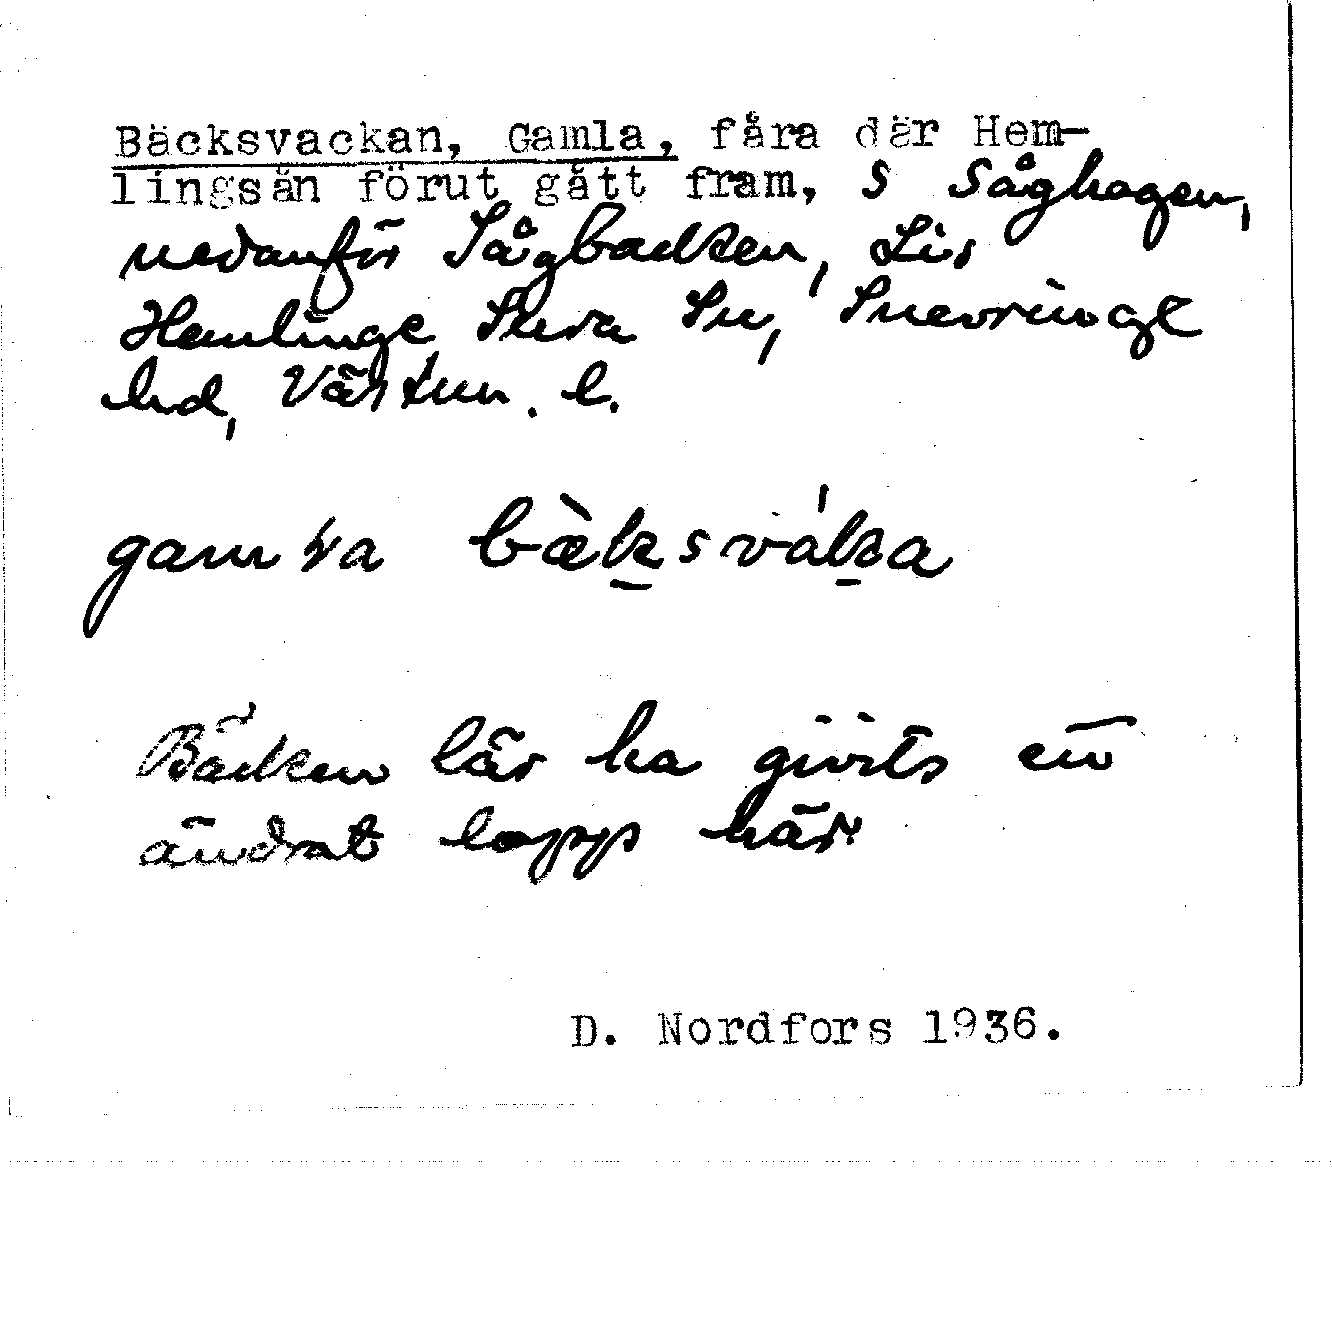 Bäcksvackan, Gamla, fåra där Hem-
lingsån förut gått fram, S Såghagen,
nedanför Sågbacken, Lis
Hemlinge Sura Sn, Snevringe
hd, Västm. l.
gamɫa bæ̀ksváka
Bäcken lär ha givits en
ändrat lopp här.
D. Nordfors 1936.